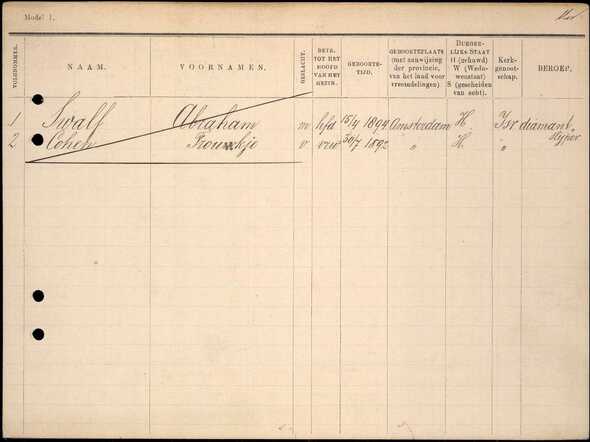 Model 1.
VOLGNOMMER. NAAM. VOORNAMEN. GESLACHT. BETR. TOT HET HOOFD VAN HET GEZIN. GEBOORTE-TIJD. GEBOORTEPLAATS (met aanwijzing der provincie, van het land voor vreemdelingen) BURGER-LIJKE STAAT H (gehuwd) W (Wedu-wenstaat) S (gescheiden van echt). Kerk-genoot-schap. BEROEP.
1 Swalf Abraham m hfd 15/4 1894 Amsterdam H Isr diamant
2 Cohen v vrw 30/7 1892 " H " slijper